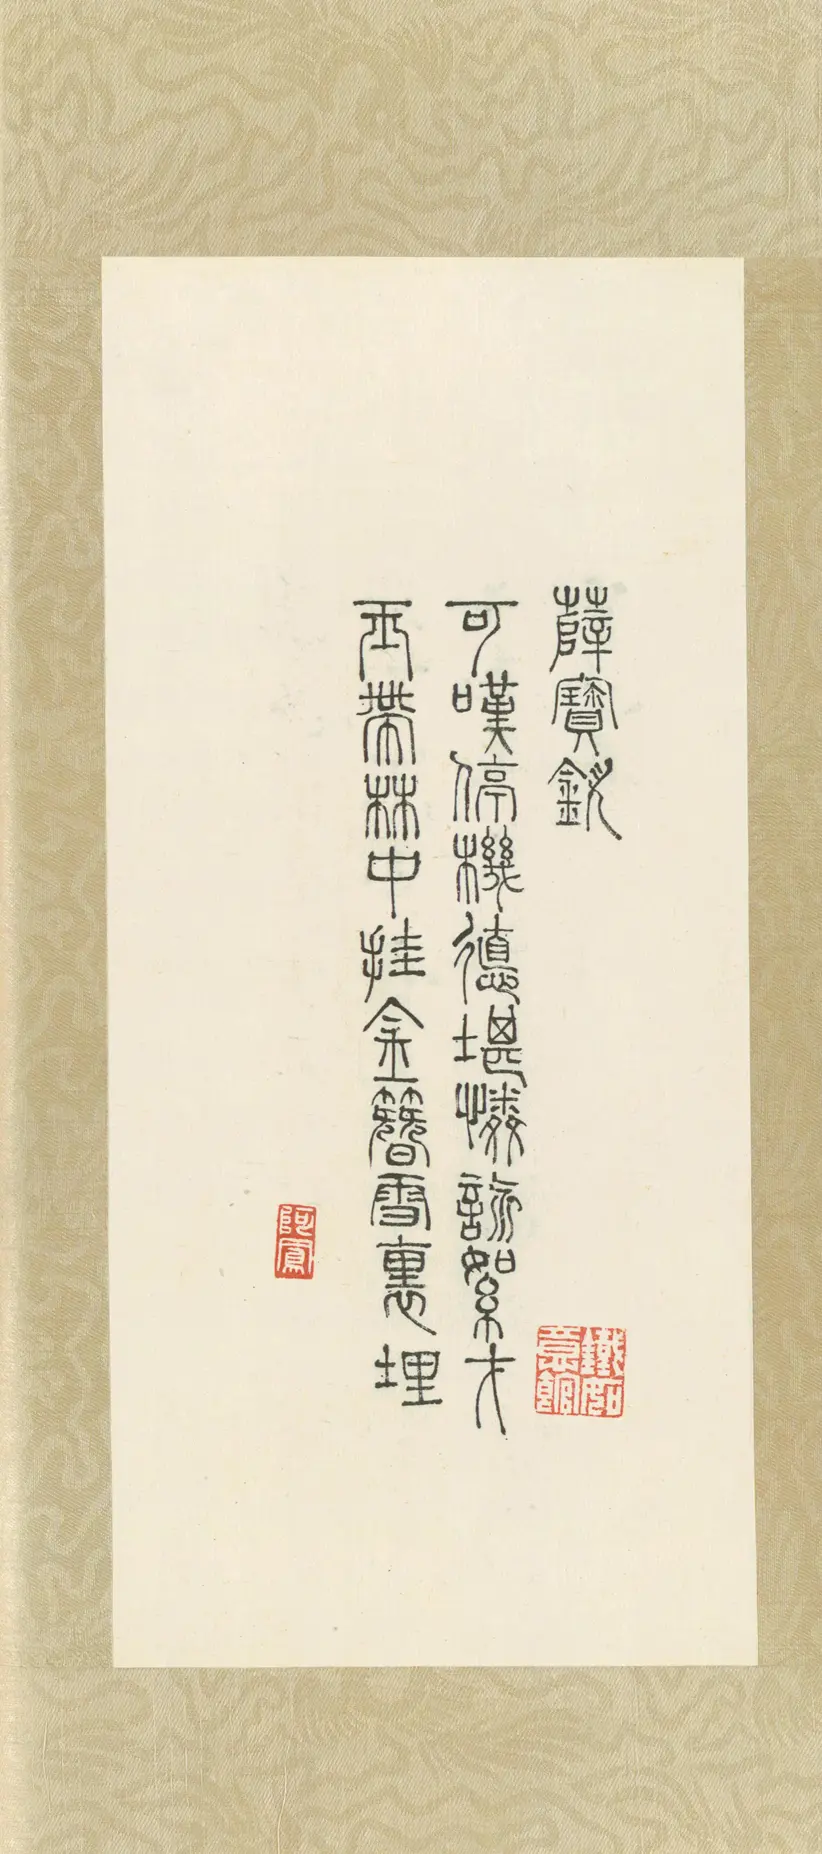 薛寶釵
鐵如意館
可嘆停機德堪憐詠絮才
玉帶林中挂金簪雪裏埋
阿鳳